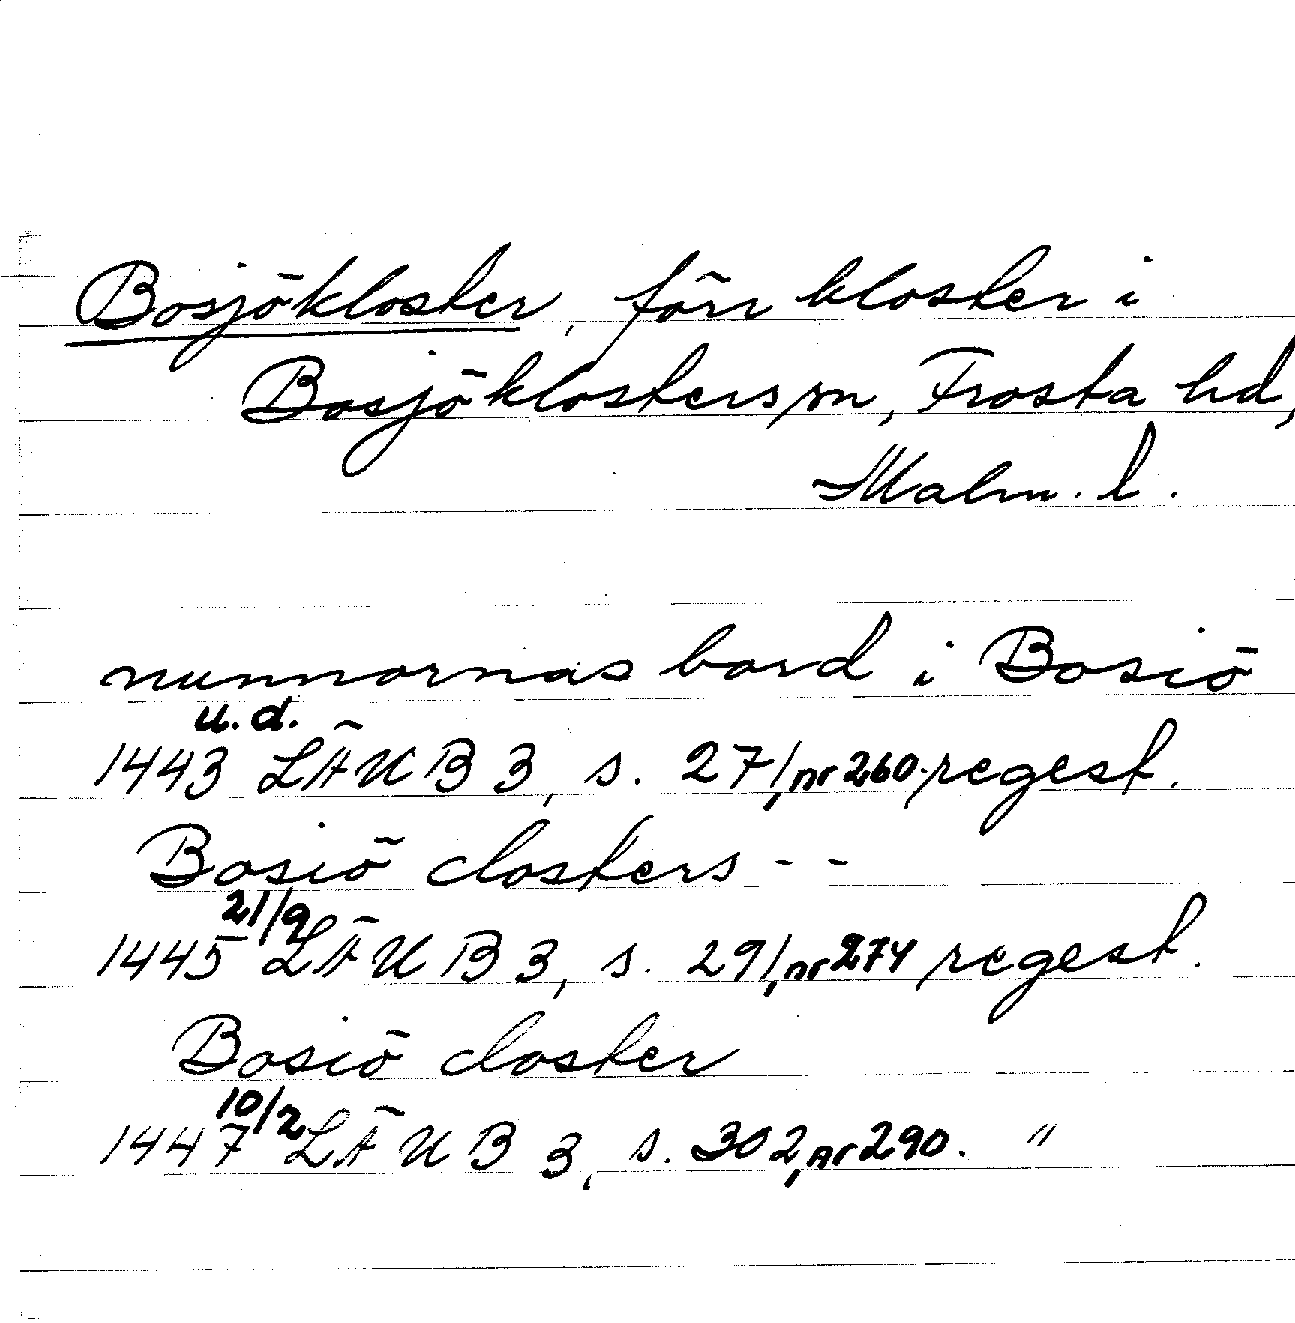 Bosjökloster, förr kloster i
Bosjöklosters sn, Frosta hd,
Malm. l.
nunnornas bord i Bosiö
u. d.
1443 LÄUB 3, s. 271, nr 260. regest.
Bosiö closters - -
21/9
1445 LÄUB 3, s. 291, nr 274 regest.
Bosiö closter
10/2
1447 LÄUB 3, s. 302, nr 290. "